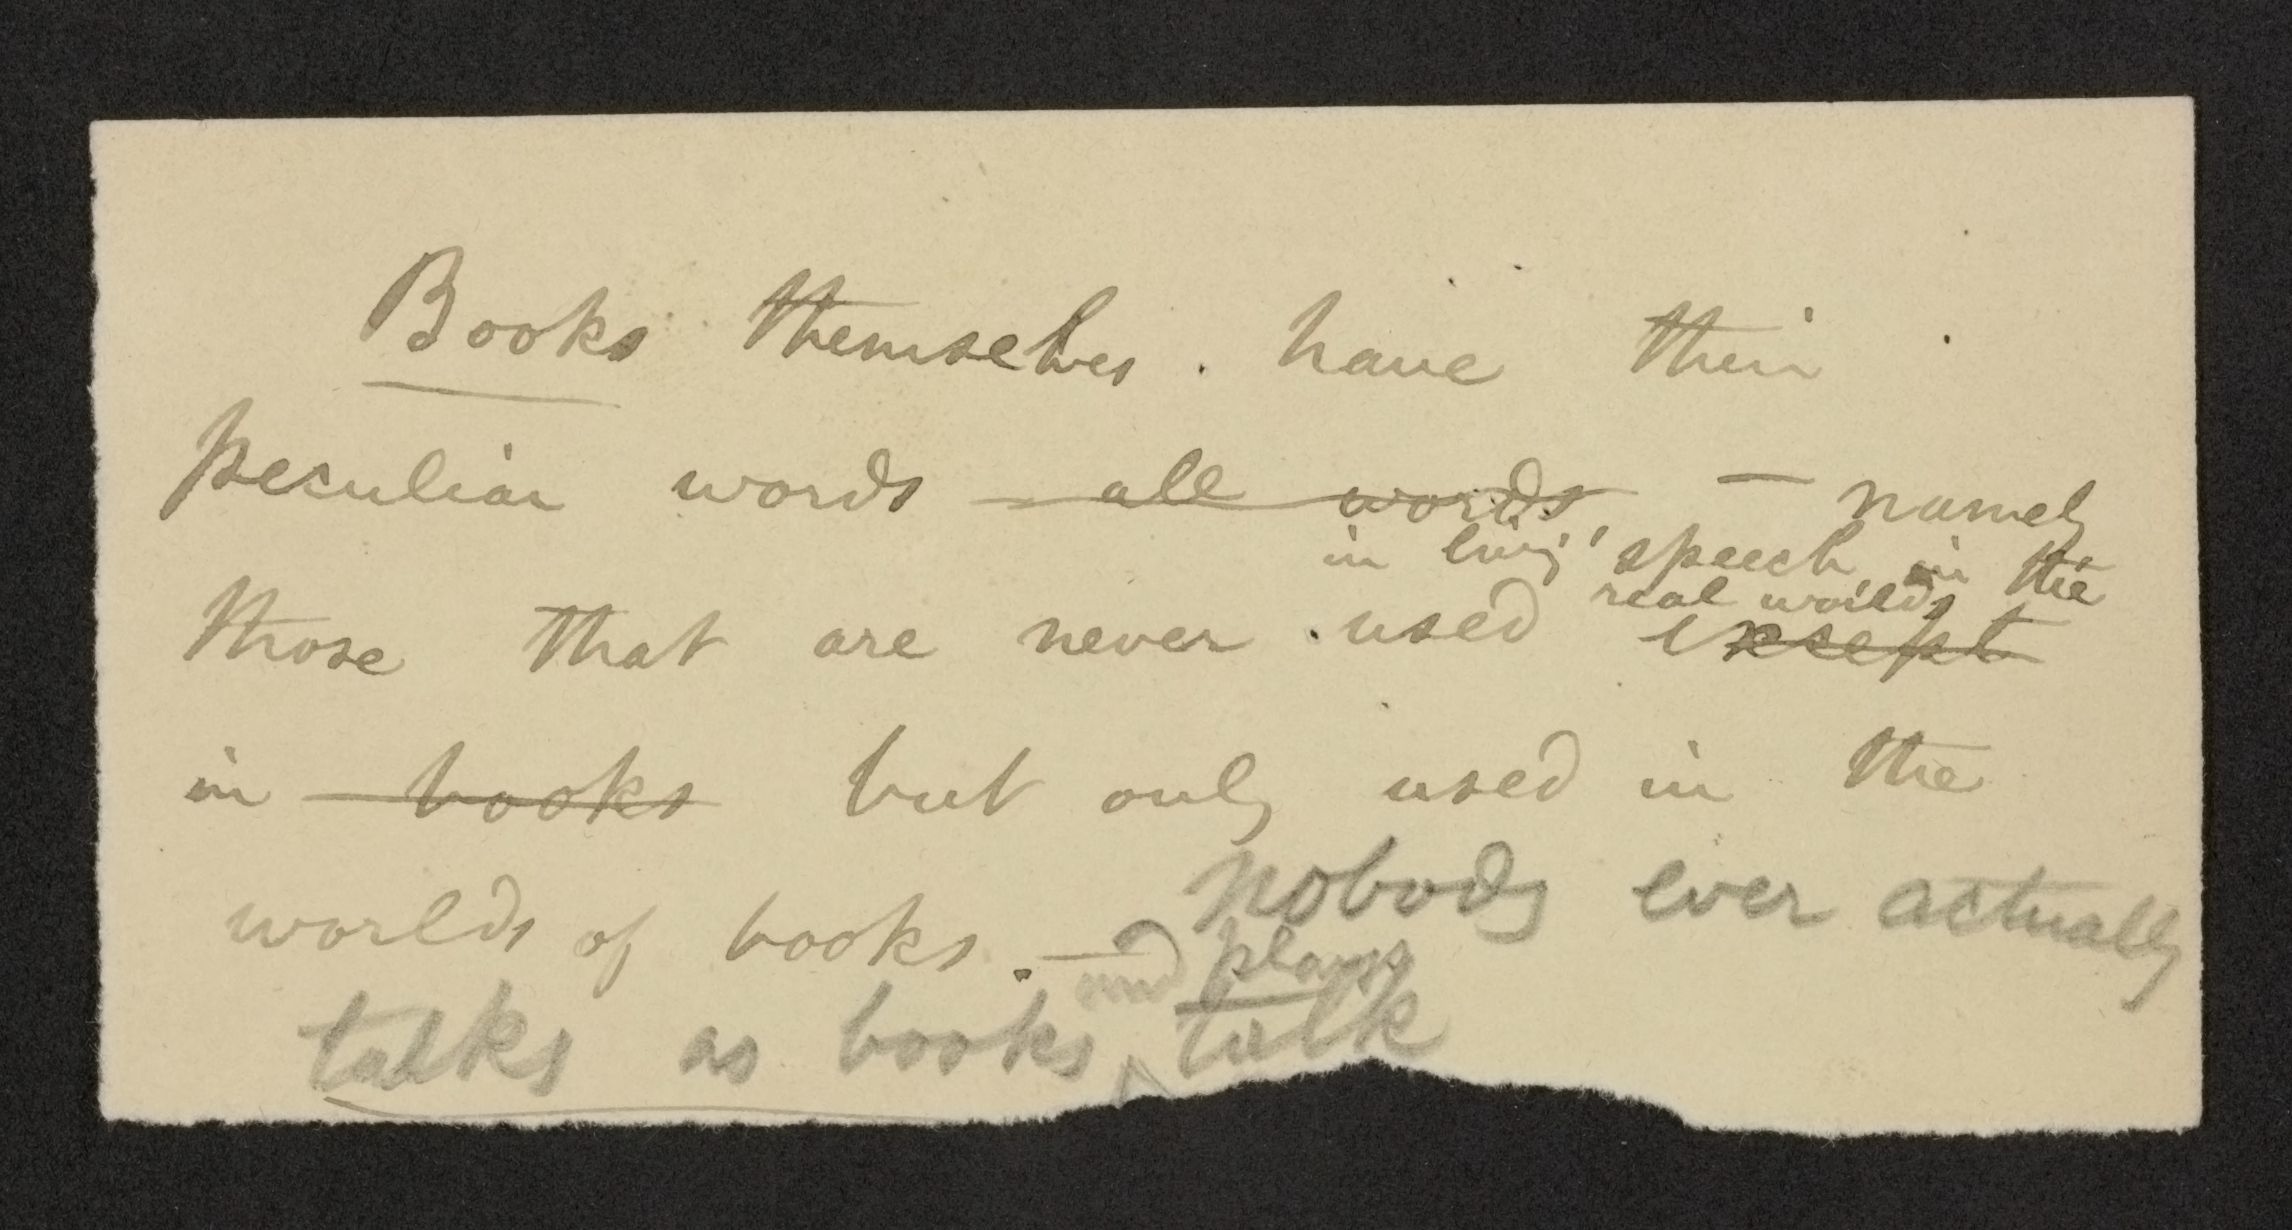 Books themselves have their
peculiar words — all words — namely
in living speech in the
real worlds
those that are never used except
in books but only used in the
worlds of books. — nobody ever actually
and plays
talks as books talk